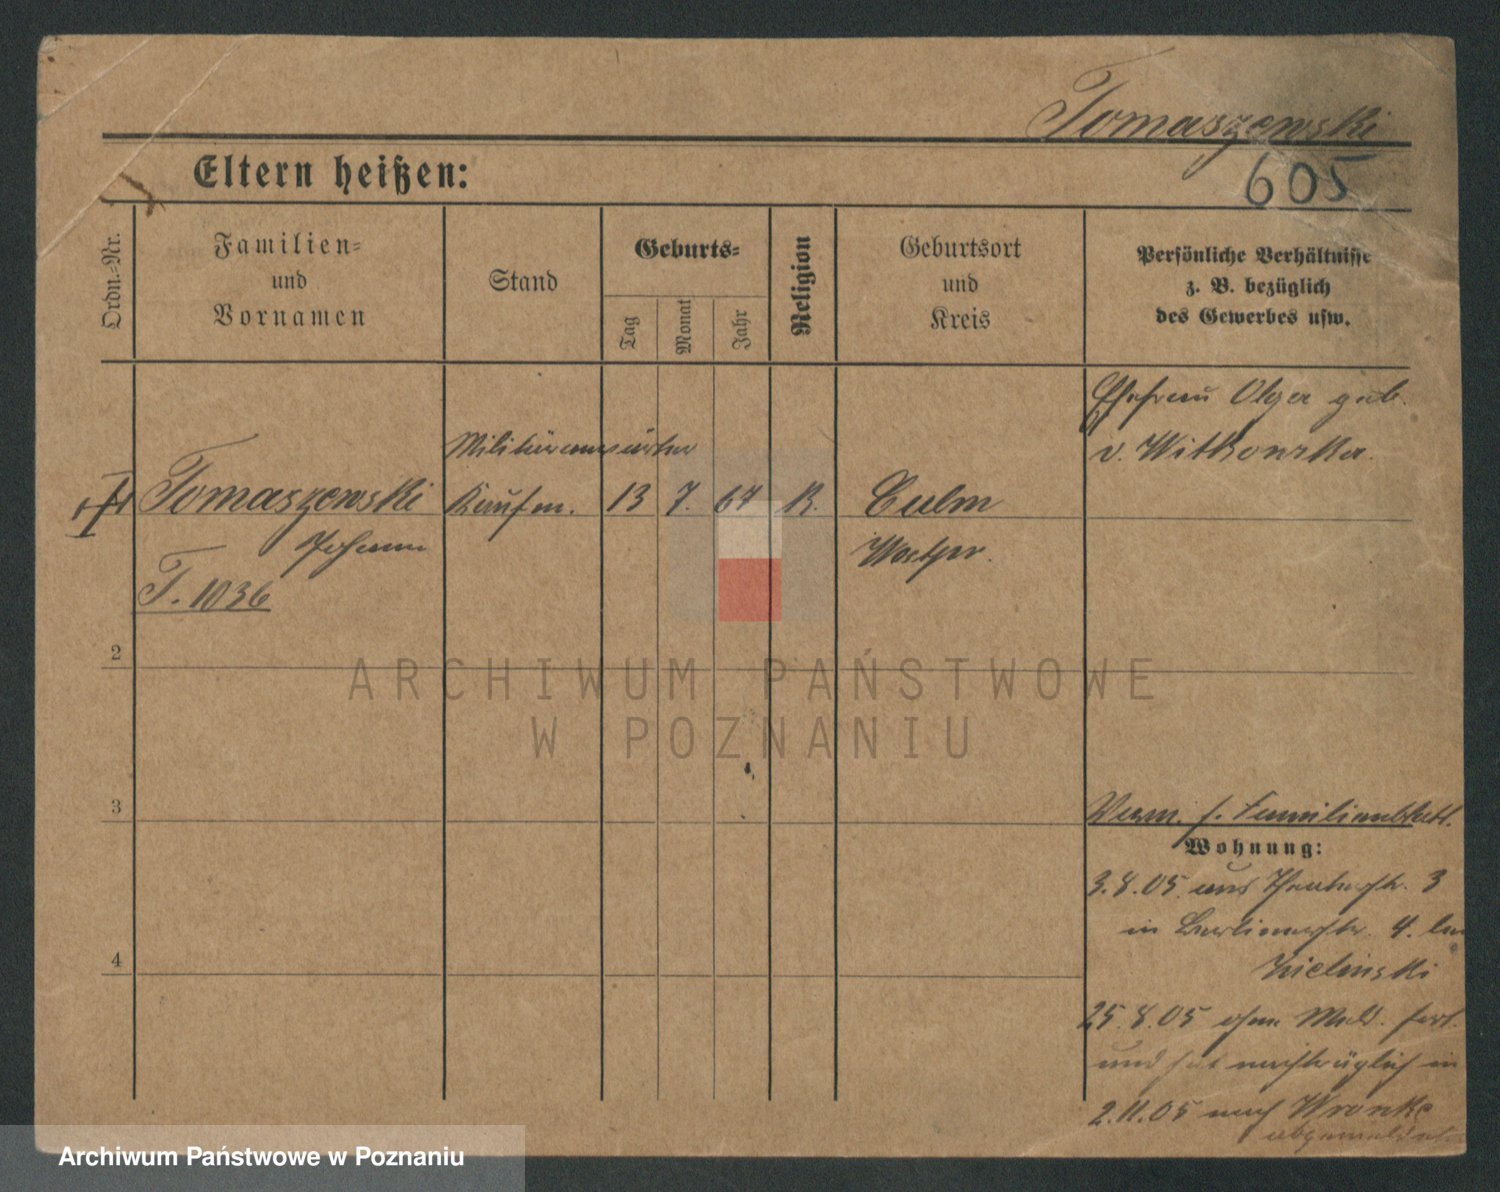 Tomaszewski
Eltern heißen:
605
Ordn.=Nr.
Familien=
und
Vornamen
Stand
Geburts=
Tag
Monat
Jahr
Religion
Geburtsort
und
Kreis
Persönliche Verhältnisse
z. B. bezüglich
des Gewerbes usw.
Ehefrau Olga geb.
v. Witkowska.
Militäranwärter
Tomaszewski Kaufm. 13 7. 67 K. Culm
Johann Westpr.
T. 1036
2
3
4
ARCHIWUM PAŃSTWOWE
W POZNANIU
Verm. s. Familienblatt.
Wohnung:
3.8.05. aus 3
in Berlinerstr. 4. bei
Zielinski
25.8.05 ohne Meld. fort.
und hat nachträglich in
2.11.05 nach Wronke
abgemeldet
Archiwum Państwowe w Poznaniu